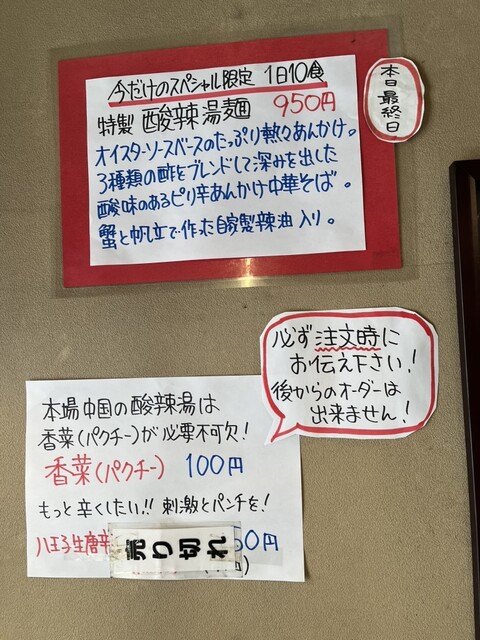 今だけのスペシャル限定 1日10食
特製 酸辣湯麺 950円
オイスターソースベースのたっぷり熱々あんかけ。
3種類の酢をブレンドして深みを出した
酸味のあるピリ辛あんかけ中華そば。
蟹と帆立で作った自家製辣油入り。
本日最終日
必ず注文時に
お伝え下さい!
後からのオーダーは
出来ません!
本場中国の酸辣湯は
香菜(パクチー)が必要不可欠!
香菜(パクチー) 100円
もっと辛くしたい!! 刺激とパンチを!
八王子生唐辛 0円
売り切れ